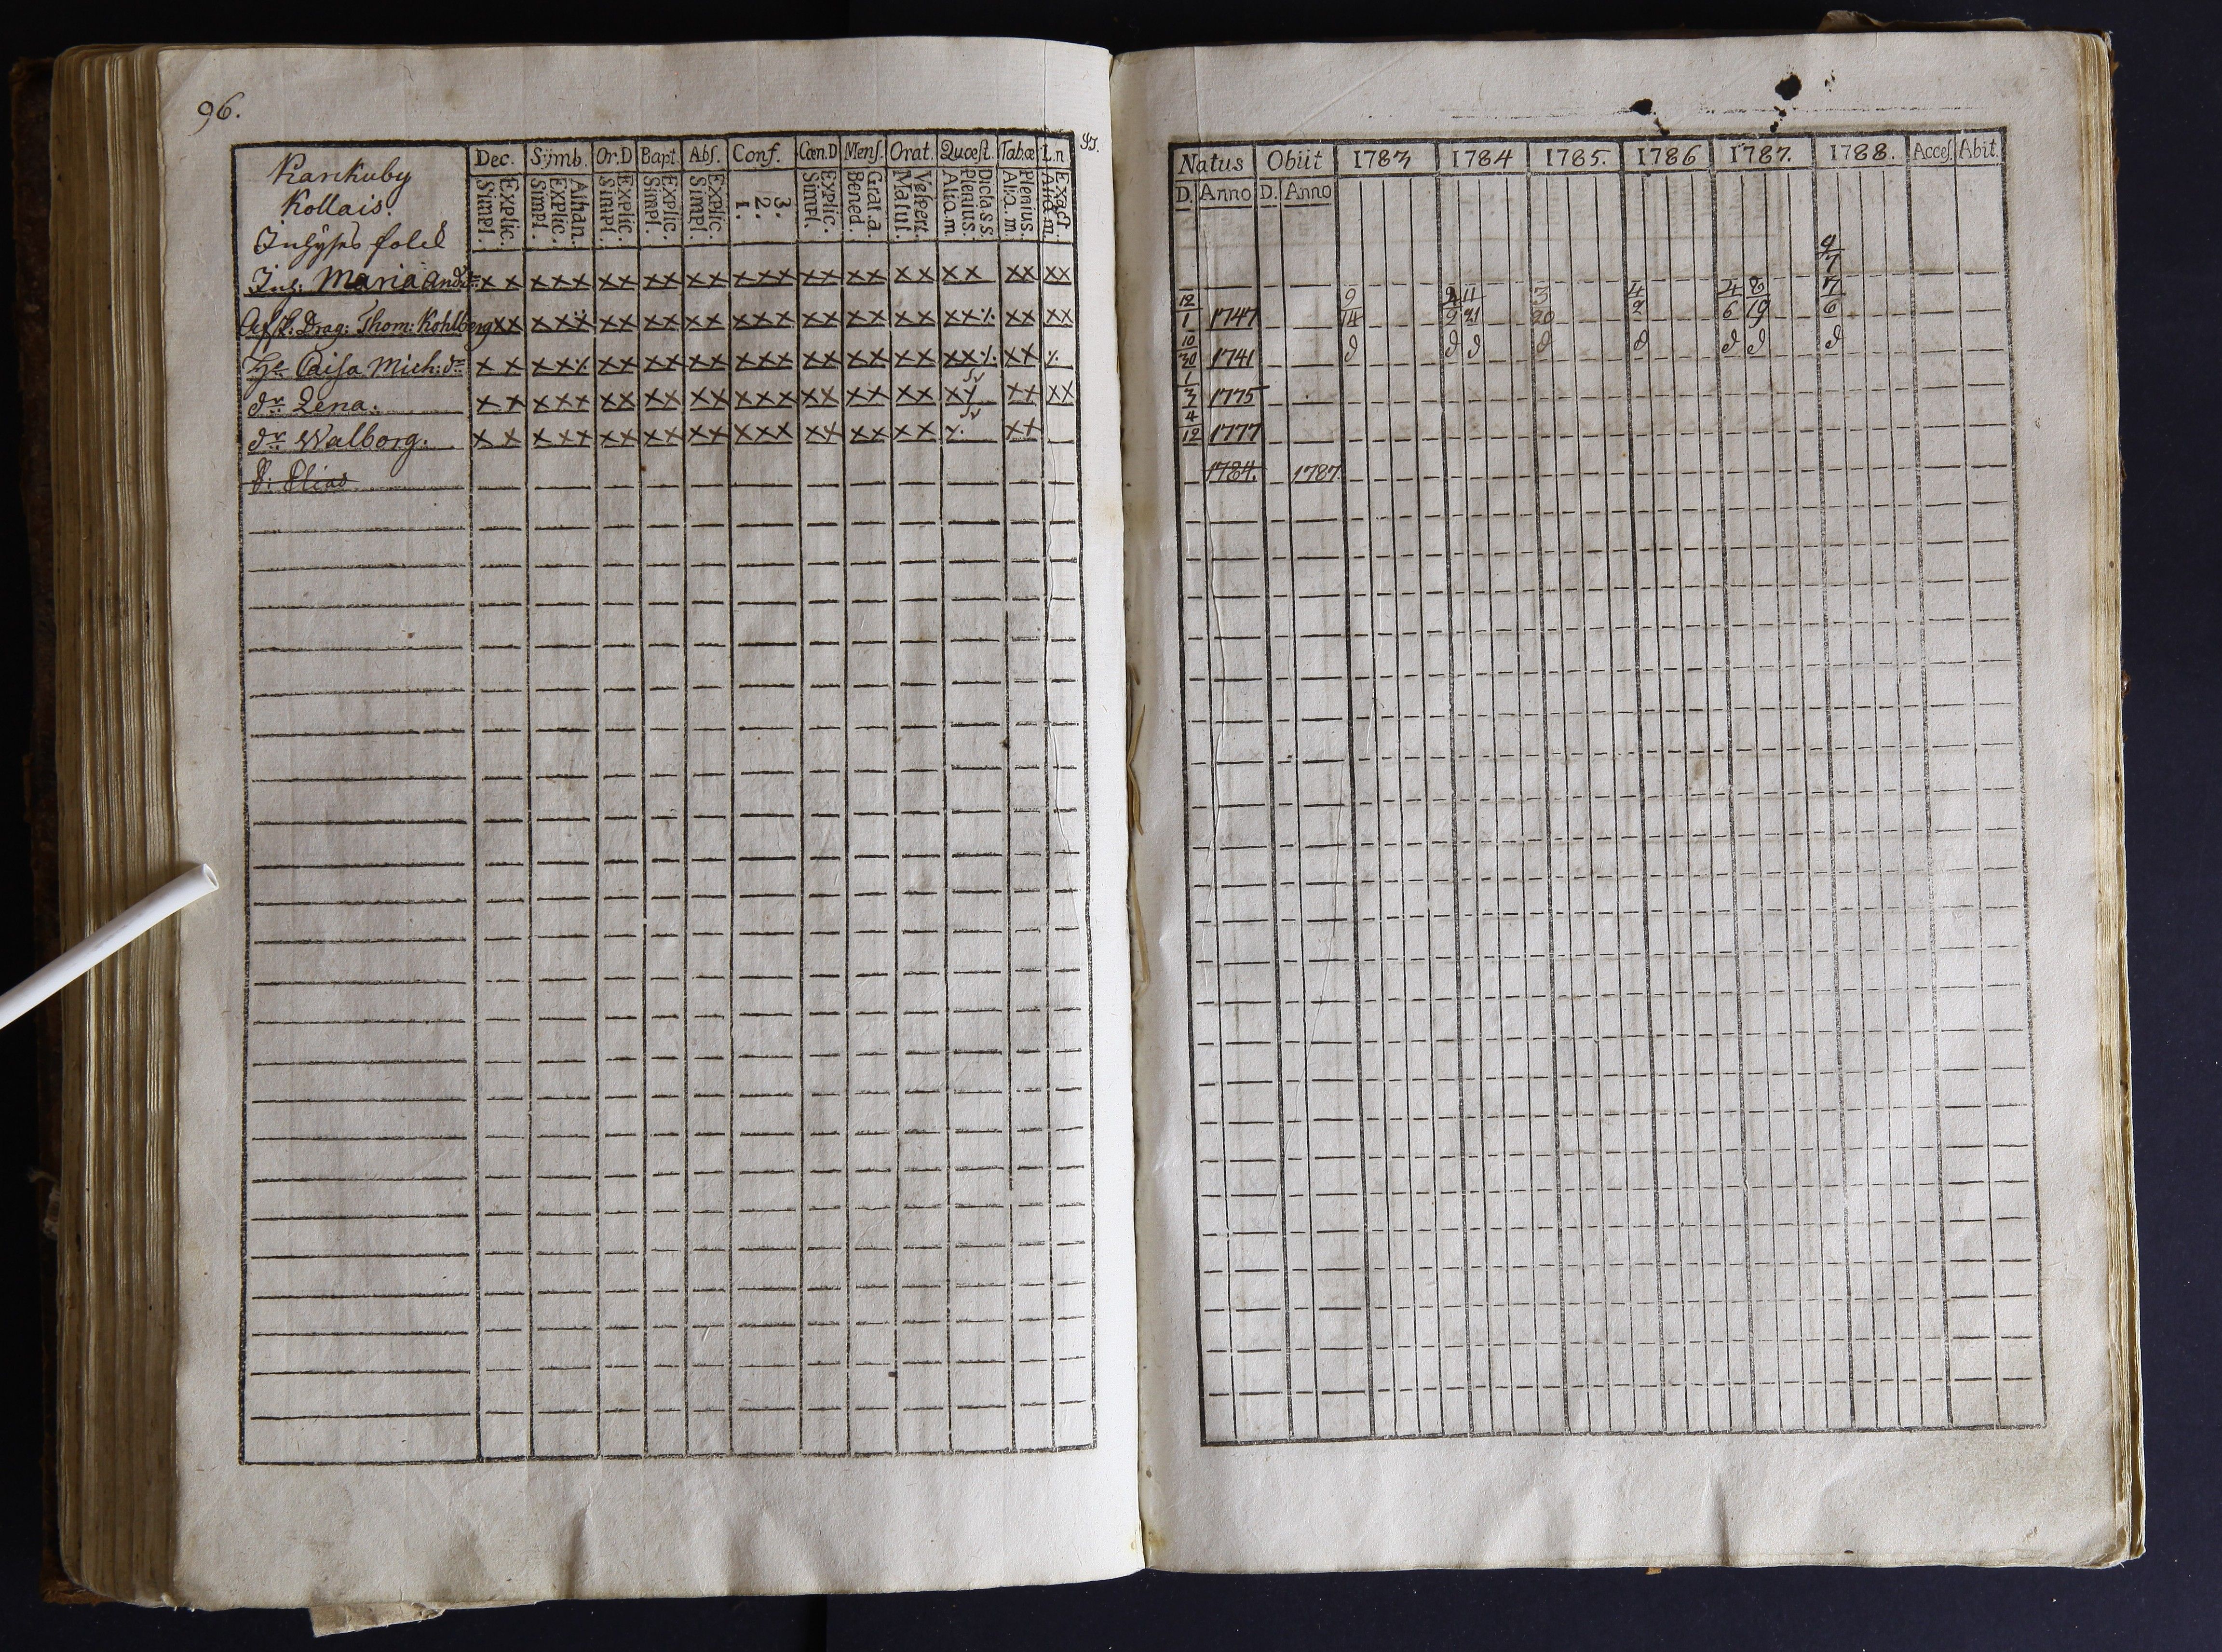 96.
95.
Karikuby
Kollais.
Inhyses folck
Dec. Symb. Or.D Bapt. Abs. Conf. Cœn.D Mens. Orat. Quœst. Tabœ L.n
Explic. Simpl. Athan. Explic. Simpl. Explic. Simpl. Explic. Simpl. Explic. Simpl. 3. 2. 1. Explic. Simpl. Grat.a. Bened. Vespert. Matut. Dicta s s. Plenius. Aliq.m. Plenius. Aliq.m. Exact. Aliq.m.
Inh: Maria And:dr x x x x x x x x x x x x x x x x x x x x x x x x x x x
Afsk. Drag: Thom: Kohlberg x x x x x x x x x x x x x x x x x x x x x x x x x x x
H:u Caisa Mich:dr x x x x x x x x x x x x x x x x x x x x x x x x x x
dr Lena. x x x x x x x x x x x x x x x x x x x x x x x x x x
dr Walborg. x x x x x x x x x x x x x x x x x x x x x x x
S: Elias
Natus Obiit 1783 1784 1785. 1786 1787. 1788. Acces. Abit.
D. Anno D. Anno
9/7
12/1 1747 9/14 4/2 11/21 3/20 4/2 4/6 8/19 7/6
10/30 1741
1/3 1775
4/12 1777
1784. 1787